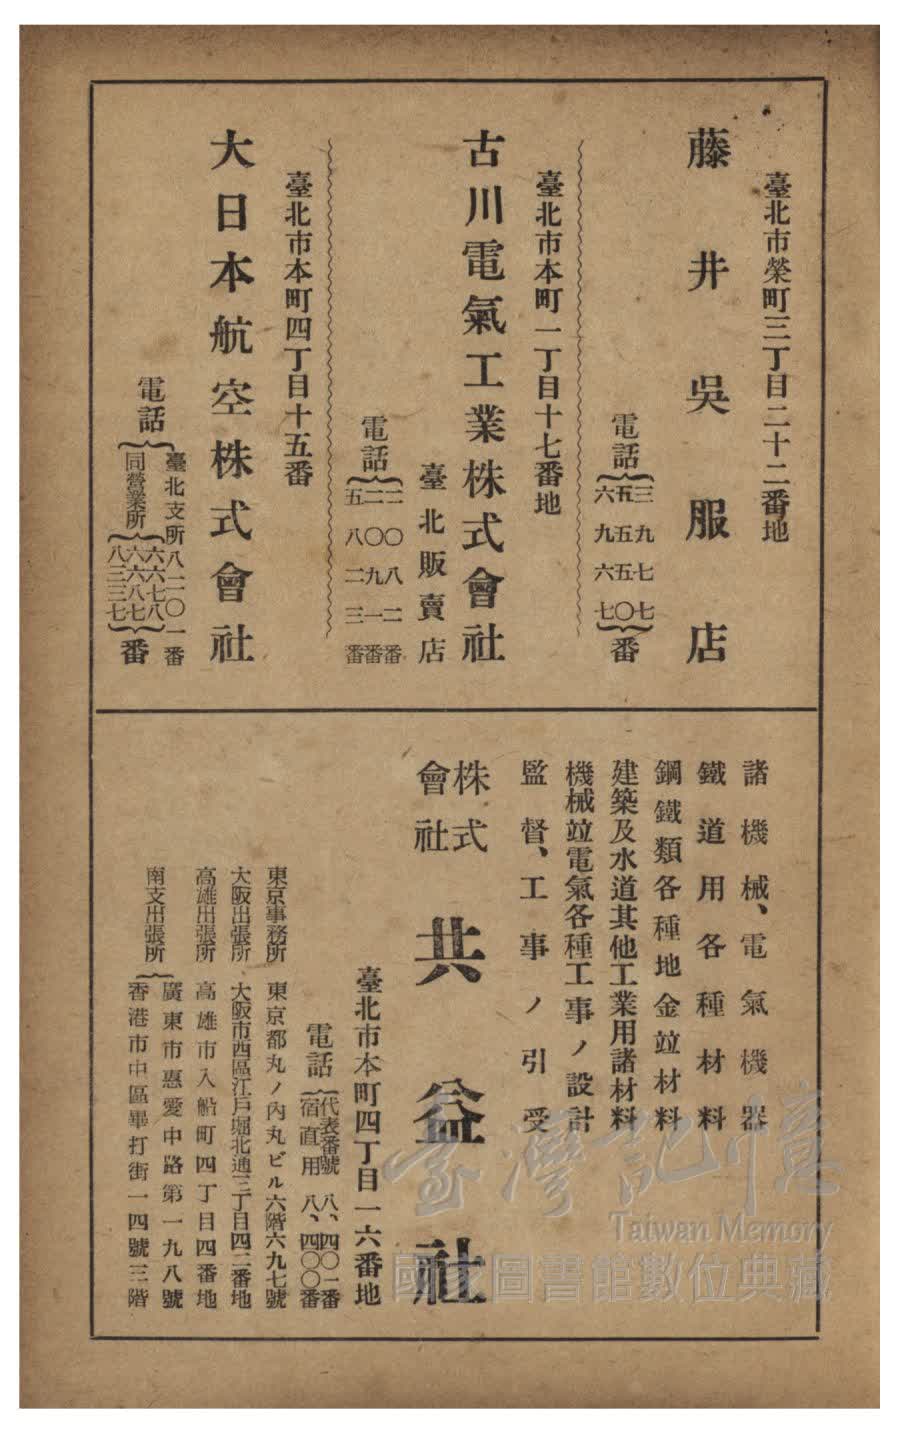 臺北市榮町三丁目二十二番地
藤井吳服店
電話
三九七七
五五五〇
六九六七
番
臺北市本町一丁目十七番地
古川電氣工業株式會社
臺北販賣店
電話
三〇八二番
二〇九一番
五八二三番
臺北市本町四丁目十五番
大日本航空株式會社
電話
臺北支所八二〇一番
同營業所
六六七八
六六八七
八三三七
番
諸機械、電氣機器
鐵道用各種材料
鋼鐵類各種地金竝材料
建築及水道其他工業用諸材料
機械竝電氣各種工事ノ設計
監督、工事ノ引受
株式會社 共益社
臺北市本町四丁目一六番地
電話
代表番號 八、四〇一番
宿直用 八、四〇〇番
東京事務所 東京都丸ノ內丸ビル六階六九七號
大阪出張所 大阪市西區江戶堀北通三丁目四二番地
高雄出張所 高雄市入船町四丁目四番地
南支出張所
廣東市惠愛中路第一九八號
香港市中區畢打街一四號三階
臺灣記憶
Taiwan Memory
國家圖書館數位典藏